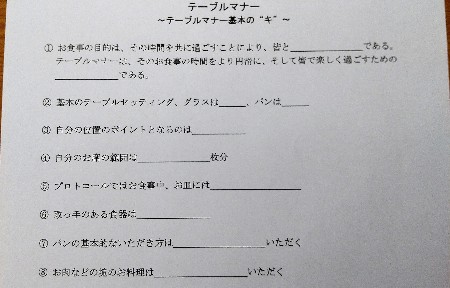 テーブルマナー
～テーブルマナー基本の“キ”～
① お食事の目的は、その時間を共に過ごすことにより、皆と＿＿＿＿＿＿である。
テーブルマナーは、そのお食事の時間をより円滑に、そして皆で楽しく過ごすための
＿＿＿＿＿＿である。
② 基本のテーブルセッティング、グラスは＿＿＿、パンは＿＿＿
③ 自分の位置のポイントとなるのは＿＿＿＿＿＿
④ 自分のお席の範囲は＿＿＿＿＿＿枚分
⑤ プロトコールではお食事中、お皿には＿＿＿＿＿＿＿＿＿＿
⑥ 取っ手のある食器は＿＿＿＿＿＿
⑦ パンの基本的ないただき方は＿＿＿＿＿＿＿＿いただく
⑧ お肉などの塊のお料理は＿＿＿＿＿＿＿＿いただく